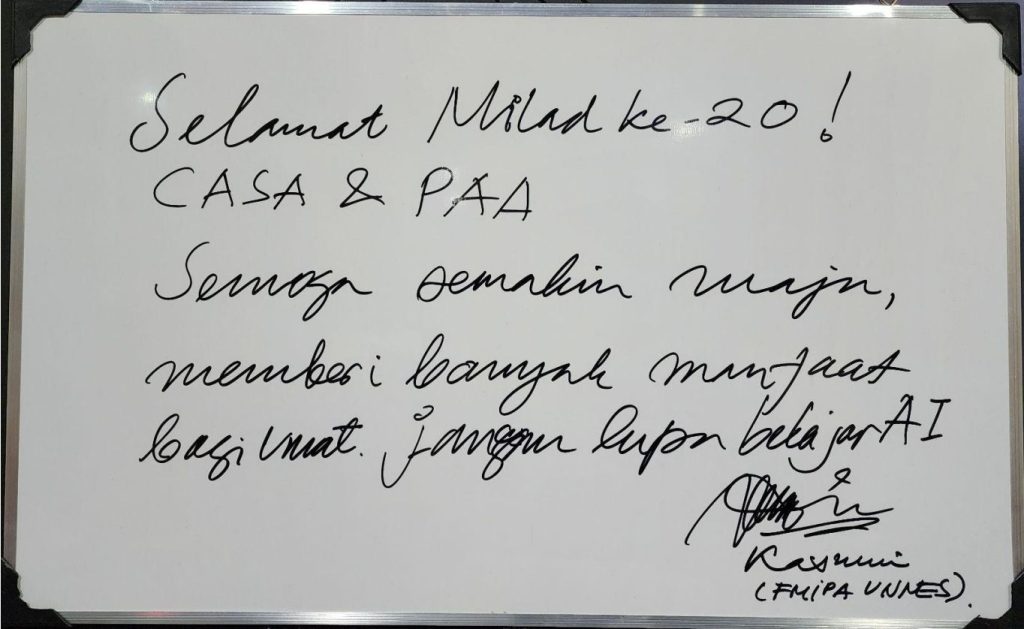 Selamat Milad ke-20!
CASA & PAA
Semoga semakin maju,
memberi banyak manfaat
bagi umat. jangan lupa belajar AI
Kasmui
(FMIPA UNNES).